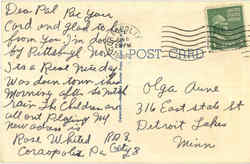 Dear Pal Rec your
Card and glad to hear
from you I'm down
by Pittsburgh now
Its a Real Nice day
Was down town this
Morning after so Much
rain The Children are
all out Playing My
new adress is
Rose White RD 2
Coraopolis Pa
POST CARD
Olga Aune
316 East State St
Detroit Lakes
Minn